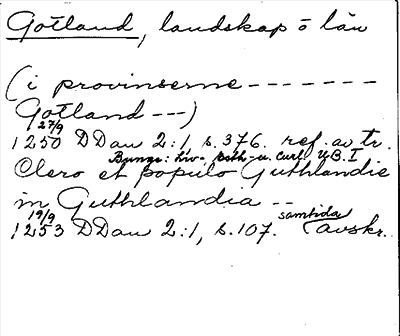 Gotland, landskap o län
(i provinserne --------
Gotland ---)
27/9
1250 DDan 2:1, s. 376. ref. av tr.
Bunge: Liv-, Esth- u. Curl. UB. I
Clero et populo Guthlandie
in Guthlandia --
19/9 samtida
1253 DDan 2:1, s. 107. avskr.